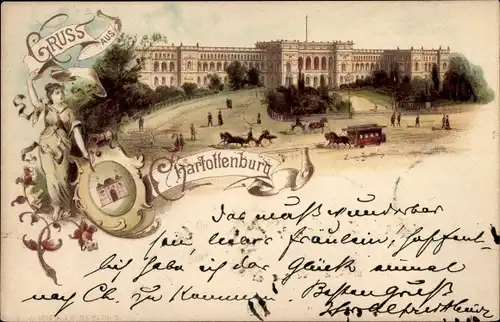 GRUSS
AUS
Charlottenburg
Das muß wunderbar
sein, liebes Fräulein, hoffent-
lich habe ich das Glück einmal
nach Ch. zu kommen. Besten Gruß